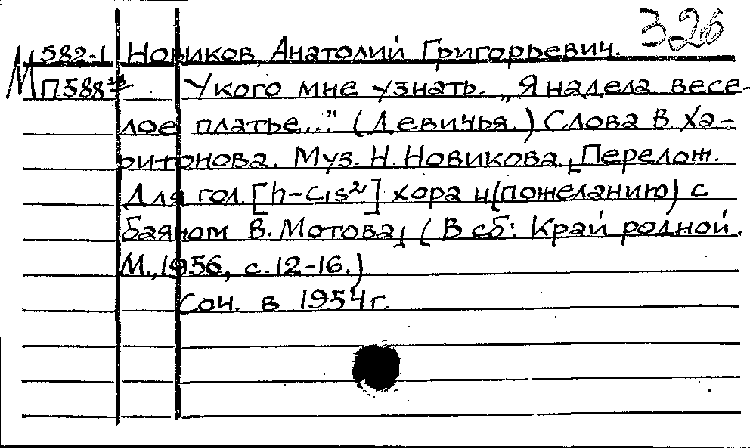 326
М 582-1 Новиков, Анатолий Григорьевич.
П588 У кого мне узнать. „Я надела весе-
лое платье..." (Девичья.) Слова В. Ха-
ритонова. Муз. Н. Новикова, Перелож.
Для гол. [h-cis²] хора и (по желанию) с
баяном В. Мотова, (В сб: Край родной.
М., 1956, с. 12-16.)
Соч. в 1954 г.